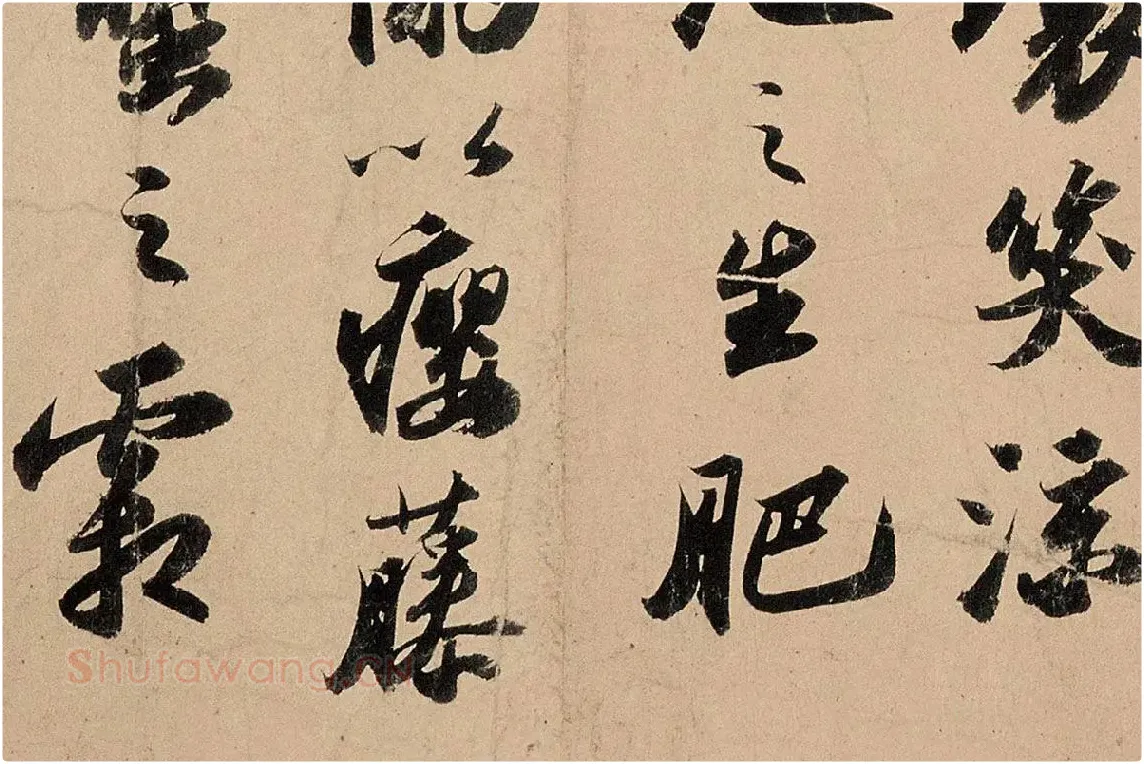 笑涼
之生肥
以癭藤
之霜
Shufawang.CN